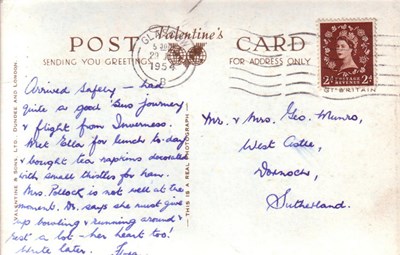 POST Valentine's CARD
SENDING YOU GREETINGS
FOR ADDRESS ONLY
GL
1954
POSTAGE REVENUE
2d 2d
GT. BRITAIN
VALENTINE & SONS. LTD. DUNDEE AND LONDON.
THIS IS A REAL PHOTOGRAPH
Arrived Safely – had
quite a good 'bus journey
& flight from Inverness.
Met Ella for lunch to-day
& bought tea napkins decorated
with small thistles for ham.
Mrs. Pollock is not well at the
moment. Dr. says she must give
up bowling & running around &
rest a lot – her heart too!
Write later.
Mr. & Mrs. Geo. Munro,
West Castle,
Dornoch,
Sutherland.